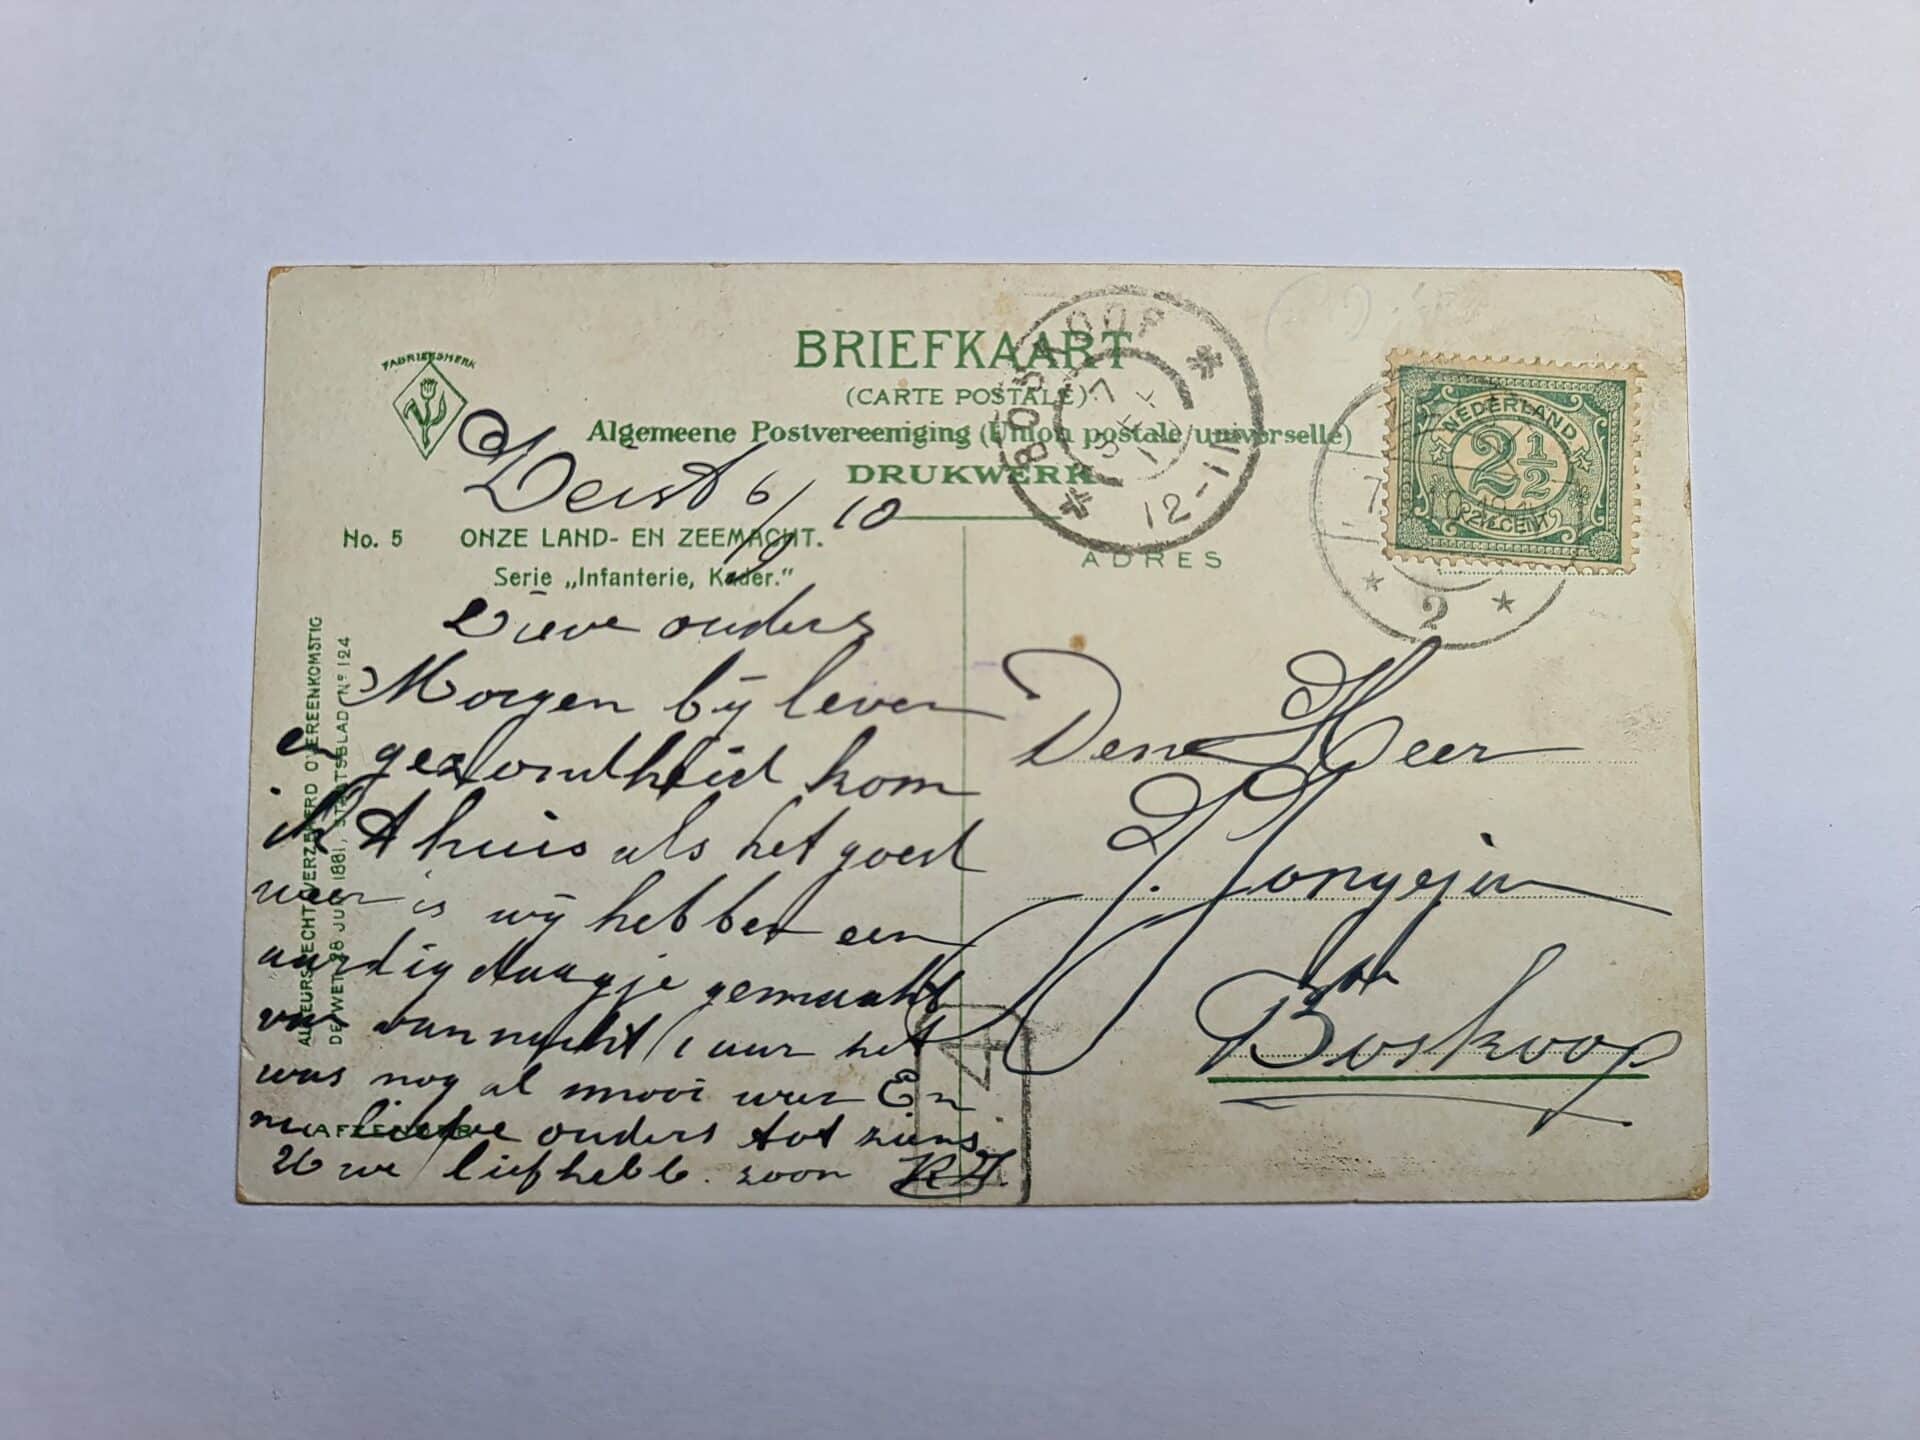 FABRIEKSMERK
BRIEFKAART
(CARTE POSTALE).
Algemeene Postvereeniging (Union postale universelle)
DRUKWERK
Zeist 6/9 10
No. 5 ONZE LAND- EN ZEEMACHT.
Serie „Infanterie, Kader."
AUTEURSRECHT VERZEKERD OVEREENKOMSTIG
DE WET 28 JUNI 1881, STAATSBLAD No 124
Lieve ouders
Morgen bij leven
en gezondheid kom
ik thuis als het goed
weer is wij hebben een
aardig daagje gemaakt
van nacht 1 uur het
was nog al mooi weer En
nu lieve ouders tot ziens
Uwe liefhebb. zoon
AFZENDER
BOSKOOP
7 SEP 10
12-1N
NEDERLAND
2½
2½ CENT
2
ADRES
Den Heer
J. Jongejin
Boskoop
4